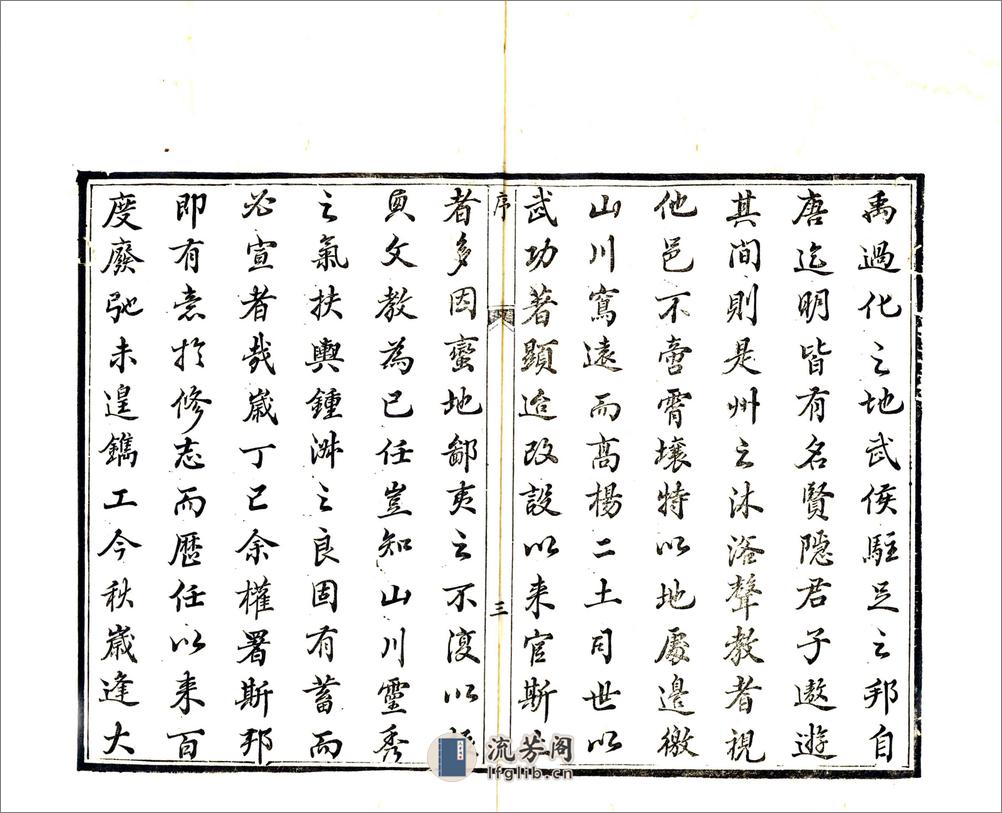 禹過化之地武侯駐足之邦自
唐迄明皆有名賢隱君子遨遊
其間則是州之沐浴聲教者視
他邑不啻霄壤特以地處邊徼
山川寫遠而高楊二土司世以
武功著顯迨改設以来官斯土
序
三
者多因蠻地鄙夷之不復以振
興文教為已任豈知山川靈秀
之氣扶輿鍾淋之良固有蓄而
必宣者哉歲丁巳余權署斯邦
即有意於修志而歷任以来百
度廢弛未遑鐫工今秋歲逢大
流芳阁
lfglib.cn